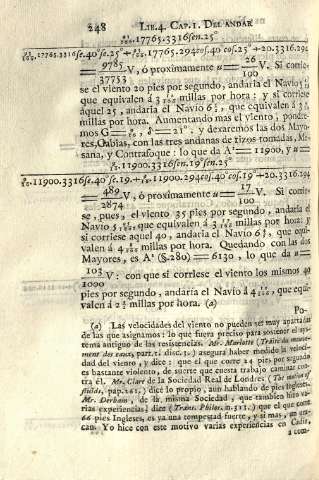 248 LIB.4. CAP.I. DEL ANDAR
.17765.3316 sen.25°
.17765.3316 se.40° se.25° + .17765.294 cos.40° cos.25° + 20.3316.294
= 9785/37753 V, ó proximamente u = 26/100 V. Si corrie-
se el viento 20 pies por segundo, andaría el Navío 5
que equivalen á 3 millas por hora; y si corriese
aquel 25, andaría el Navío 6 , que equivalen á 3
millas por hora. Aumentando mas el viento, pondre-
mos G = , = 21°. y dexaremos las dos Mayo-
res, Gabias, con las tres andanas de rizos tomadas, Me-
sana, y Contrafoque: lo que da A² = 11900, y u =
.11900.3316 sen.19° sen.25°
.11900.3316 se.40° se.19° + .11900.294 cos.40° cos.19° + 20.3316.294
= 489/2874 V, ó proximamente u = 17/100 V. Si corrie-
se, pues, el viento 35 pies por segundo, andaría el
Navío 5 , que equivalen á 3 millas por hora: y
si corriese aquel 40, andaría el Navío 6 , que equi-
valen á 4 millas por hora. Quedando con las dos
Mayores, es A² (§.280) = 6130, lo que da u =
103/1000 V: con que si corriese el viento los mismos 40
pies por segundo, andaría el Navío á 4 , que equi-
valen á 2 millas por hora. (a)
Po-
(a) Las velocidades del viento no pueden ser muy apartadas
de las que asignamos: lo que fuera preciso para sostener el sys-
tema antiguo de las resistencias. Mr. Mariotte (Traité du mouve-
ment des eaux, part.1. disc. 3.) asegura haber medido la veloci-
dad del viento, y dice: que el que corre 24 pies por segundo
es bastante violento, de suerte que cuesta trabajo caminar con-
tra él. Mr. Clare de la Sociedad Real de Londres (The motion of
fluids, pag.265.) dice lo propio, aun hablando de pies Ingleses.
Mr. Derham, de la misma Sociedad, que tambien hizo va-
rias experiencias, dice (Trans. Philos. n.313.) que el que corre
66 pies Ingleses, es ya una tempestad fuerte, y si mas, un ura-
can. Yo hice con este motivo varias experiencias en Cadiz,
a com-